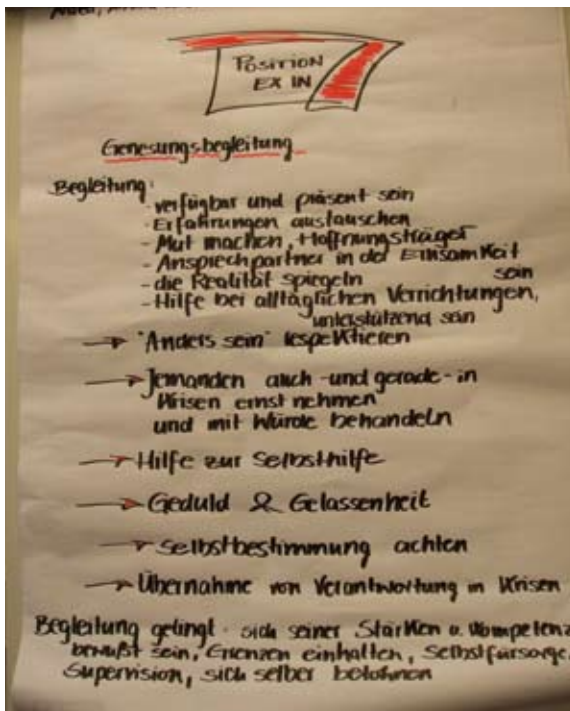 POSITION
EX IN
Genesungsbegleitung
Begleitung:
- verfügbar und präsent sein
- Erfahrungen austauschen
- Mut machen, Hoffnungsträger
- Ansprechpartner in der Einsamkeit
- die Realität spiegeln sein
- Hilfe bei alltäglichen Verrichtungen,
unterstützend sein
→ "Anders sein" respektieren
→ Jemanden auch - und gerade - in
Krisen ernst nehmen
und mit Würde behandeln
→ Hilfe zur Selbsthilfe
→ Geduld & Gelassenheit
→ Selbstbestimmung achten
→ Übernahme von Verantwortung in Krisen
Begleitung gelingt: sich seiner Stärken u. Kompetenz
bewußt sein, Grenzen einhalten, Selbstfürsorge,
Supervision, sich selber belohnen